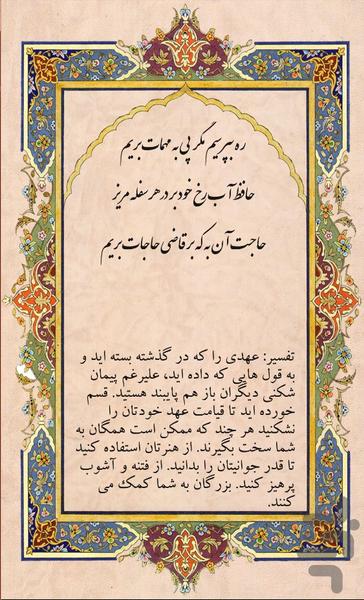 ره بپرسیم مگر پی به مهمات بریم
حافظ آب رخ خود بر در هر سفله مریز
حاجت آن به که بر قاضی حاجات بریم
تفسیر: عهدی را که در گذشته بسته اید و
به قول هایی که داده اید، علیرغم پیمان
شکنی دیگران باز هم پایبند هستید. قسم
خورده اید تا قیامت عهد خودتان را
نشکنید هر چند که ممکن است همگان به
شما سخت بگیرند. از هنرتان استفاده کنید
تا قدر جوانیتان را بدانید. از فتنه و آشوب
پرهیز کنید. بزرگان به شما کمک می
کنند.